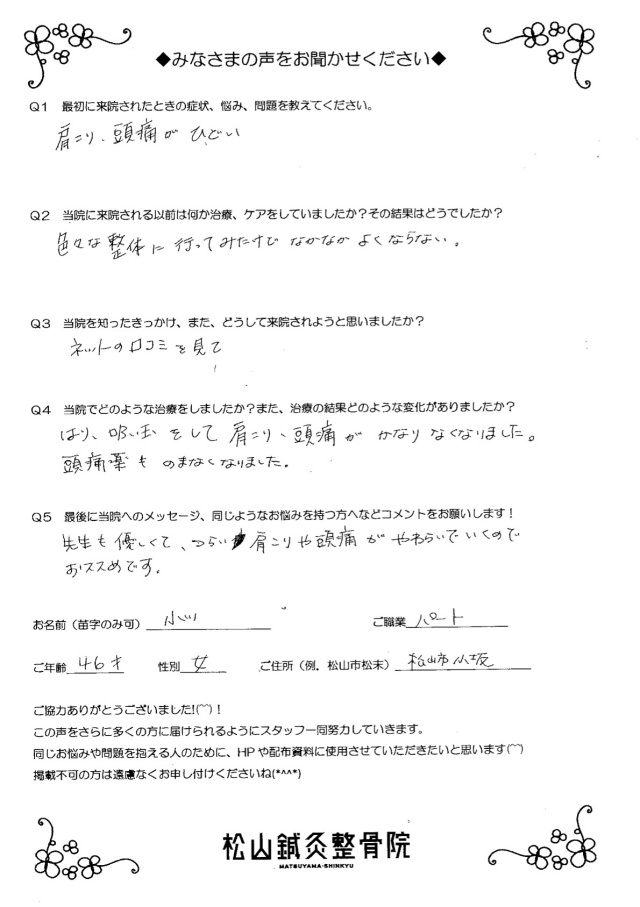 ◆みなさまの声をお聞かせください◆
Q1　最初に来院されたときの症状、悩み、問題を教えてください。
肩こり、頭痛が ひどい
Q2　当院に来院される以前は何か治療、ケアをしていましたか？その結果はどうでしたか？
色々な整体に行ってみたけど なかなか よくならない。
Q3　当院を知ったきっかけ、また、どうして来院されようと思いましたか？
ネットの口コミを見て
Q4　当院でどのような治療をしましたか？また、治療の結果どのような変化がありましたか？
はり、吸い玉をして肩こり、頭痛が かなり なくなりました。
頭痛薬も のまなくなりました。
Q5　最後に当院へのメッセージ、同じようなお悩みを持つ方へなどコメントをお願いします！
先生も優しくて、つらい肩こりや頭痛が やわらいでいくので
おススメです。
お名前（苗字のみ可） 小川　ご職業 パート
ご年齢 46才　性別 女　ご住所（例．松山市松末） 松山市小坂
ご協力ありがとうございました!(⌒⌒)！
この声をさらに多くの方に届けられるようにスタッフ一同努力していきます。
同じお悩みや問題を抱える人のために、HPや配布資料に使用させていただきたいと思います(⌒⌒)
掲載不可の方は遠慮なくお申し付けくださいね(*^^*)
松山鍼灸整骨院
MATSUYAMA-SHINKYU